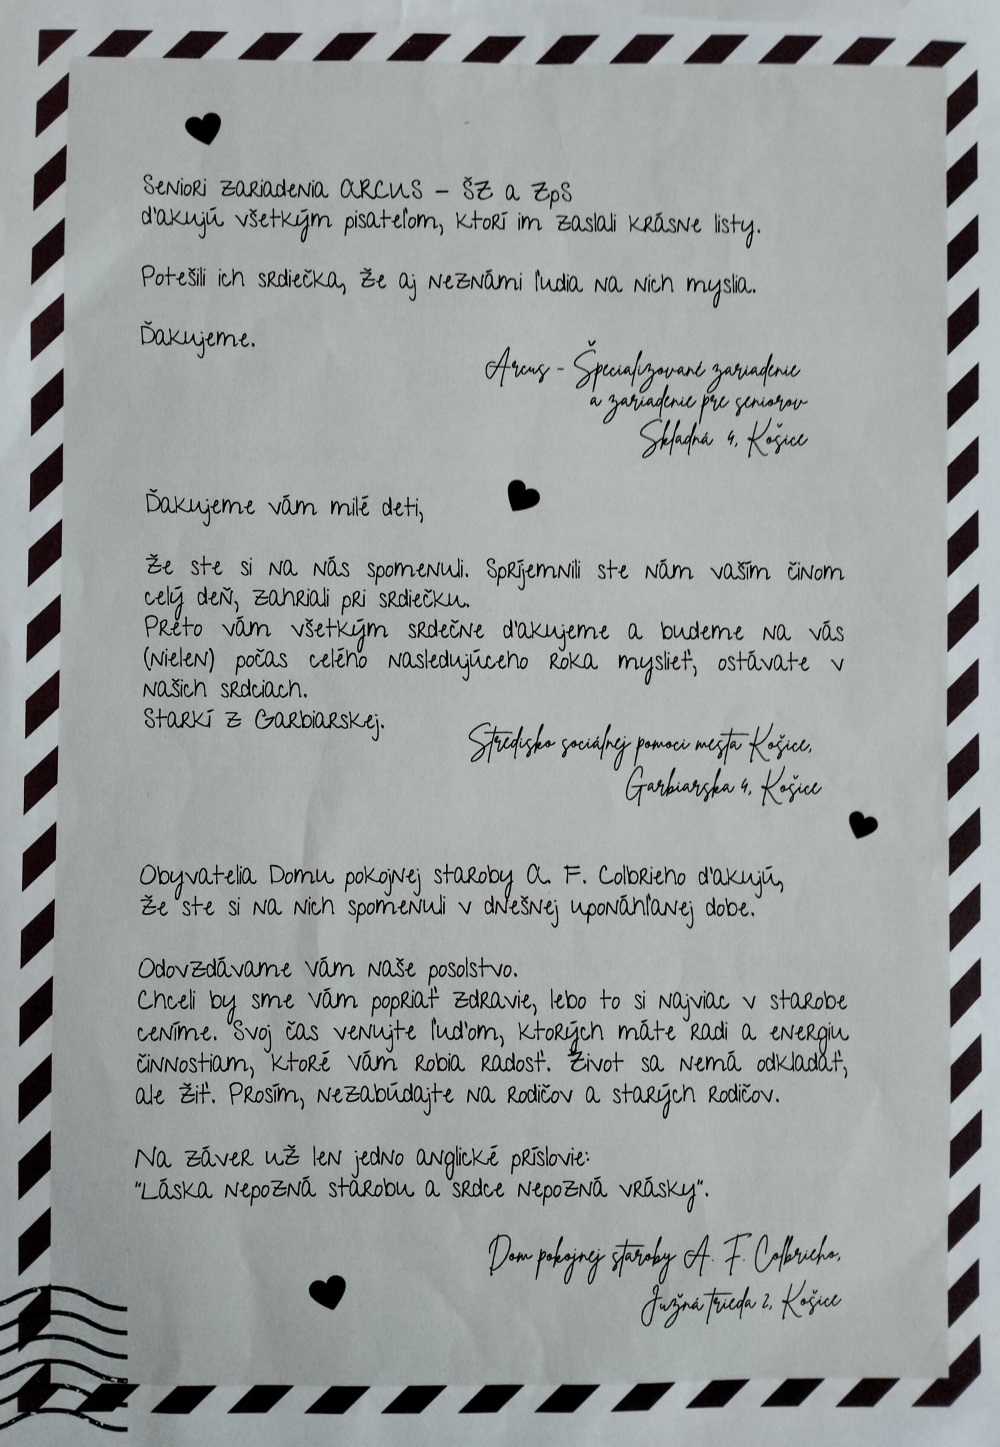 Seniori zariadenia ARCUS – ŠZ a ZpS
ďakujú všetkým pisateľom, ktorí im zaslali krásne listy.
Potešili ich srdiečka, že aj neznámi ľudia na nich myslia.
Ďakujeme.
Arcus - Špecializované zariadenie
a zariadenie pre seniorov
Skladná 4, Košice
Ďakujeme vám milé deti,
že ste si na nás spomenuli. Spríjemnili ste nám vaším činom
celý deň, zahriali pri srdiečku.
Preto vám všetkým srdečne ďakujeme a budeme na vás
(nielen) počas celého nasledujúceho roka myslieť, ostávate v
našich srdciach.
Starkí z Garbiarskej.
Stredisko sociálnej pomoci mesta Košice,
Garbiarska 4, Košice
Obyvatelia Domu pokojnej staroby A. F. Colbrieho ďakujú,
že ste si na nich spomenuli v dnešnej uponáhľanej dobe.
Odovzdávame vám naše posolstvo.
Chceli by sme vám popriať zdravie, lebo to si najviac v starobe
ceníme. Svoj čas venujte ľuďom, ktorých máte radi a energiu
činnostiam, ktoré vám robia radosť. Život sa nemá odkladať,
ale žiť. Prosím, nezabúdajte na rodičov a starých rodičov.
Na záver už len jedno anglické príslovie:
"Láska nepozná starobu a srdce nepozná vrásky".
Dom pokojnej staroby A. F. Colbrieho,
Južná trieda 2, Košice